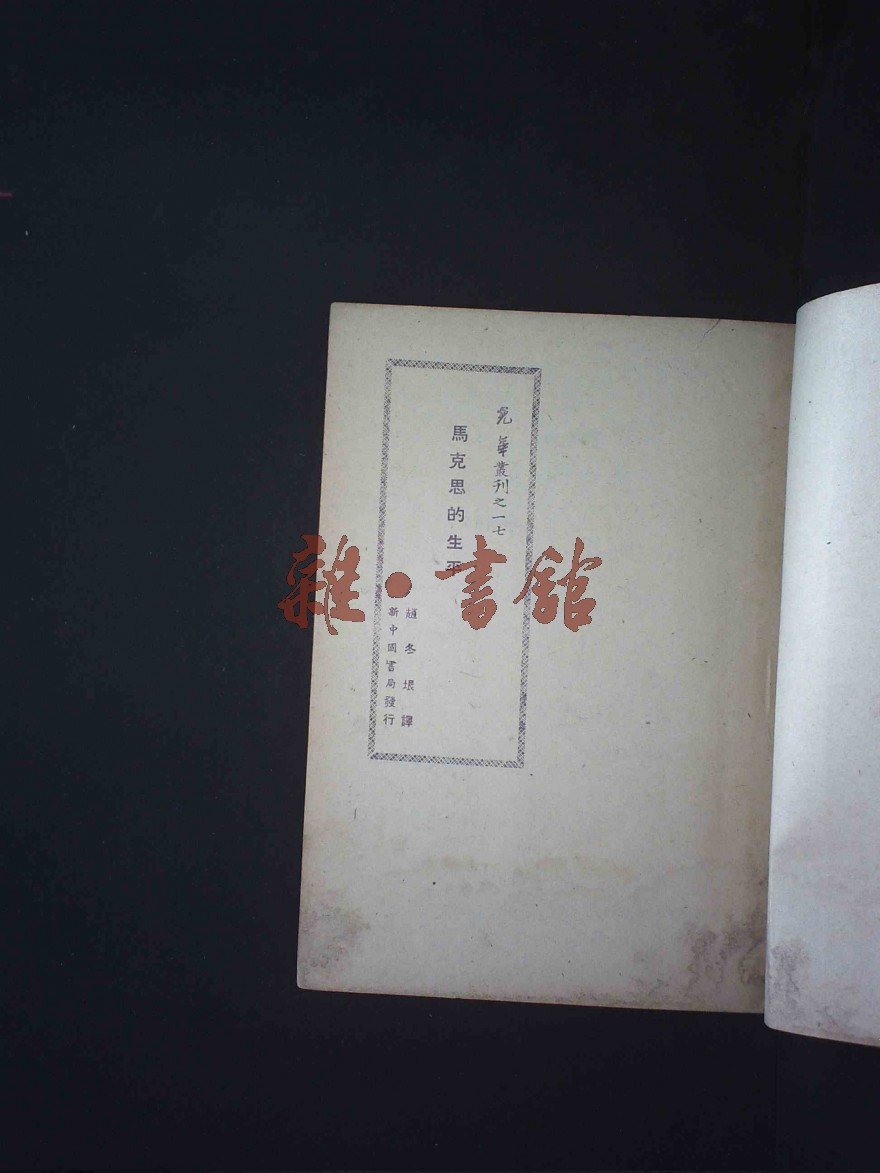 光華叢刊之一七
馬克思的生平
趙冬垠譯
新中國書局發行
雜·書館